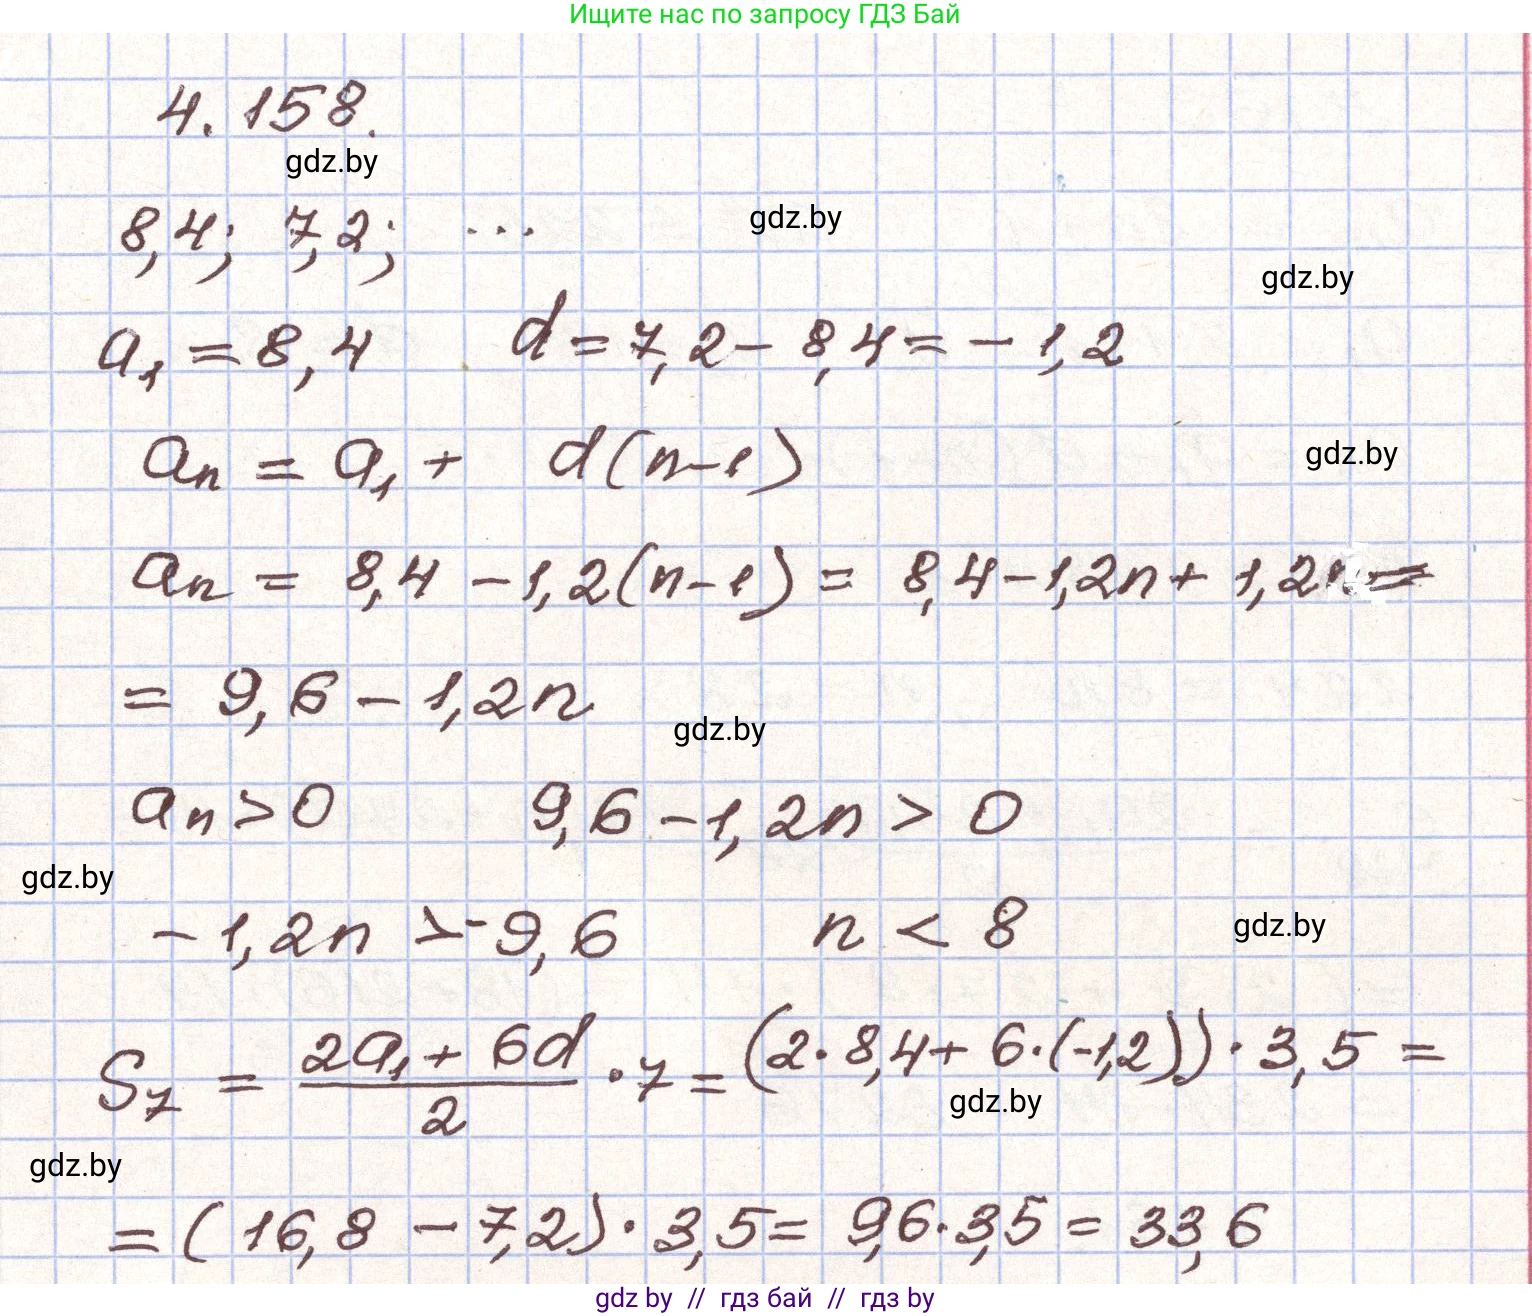 Ищите нас по запросу ГДЗ Бай
4.158.
gdz.by
8,4; 7,2; ...
gdz.by
gdz.by
a₁ = 8,4 d = 7,2 - 8,4 = - 1,2
aₙ = a₁ + d(n-1)
gdz.by
aₙ = 8,4 - 1,2(n-1) = 8,4 - 1,2n + 1,2 =
= 9,6 - 1,2n
gdz.by
aₙ > 0 9,6 - 1,2n > 0
gdz.by
- 1,2n > -9,6 n < 8
gdz.by
S₇ = (2a₁ + 6d)/2 · 7 = (2·8,4 + 6·(-1,2)) · 3,5 =
gdz.by
gdz.by
= (16,8 - 7,2) · 3,5 = 9,6·3,5 = 33,6
gdz by // гдз бай // гдз by